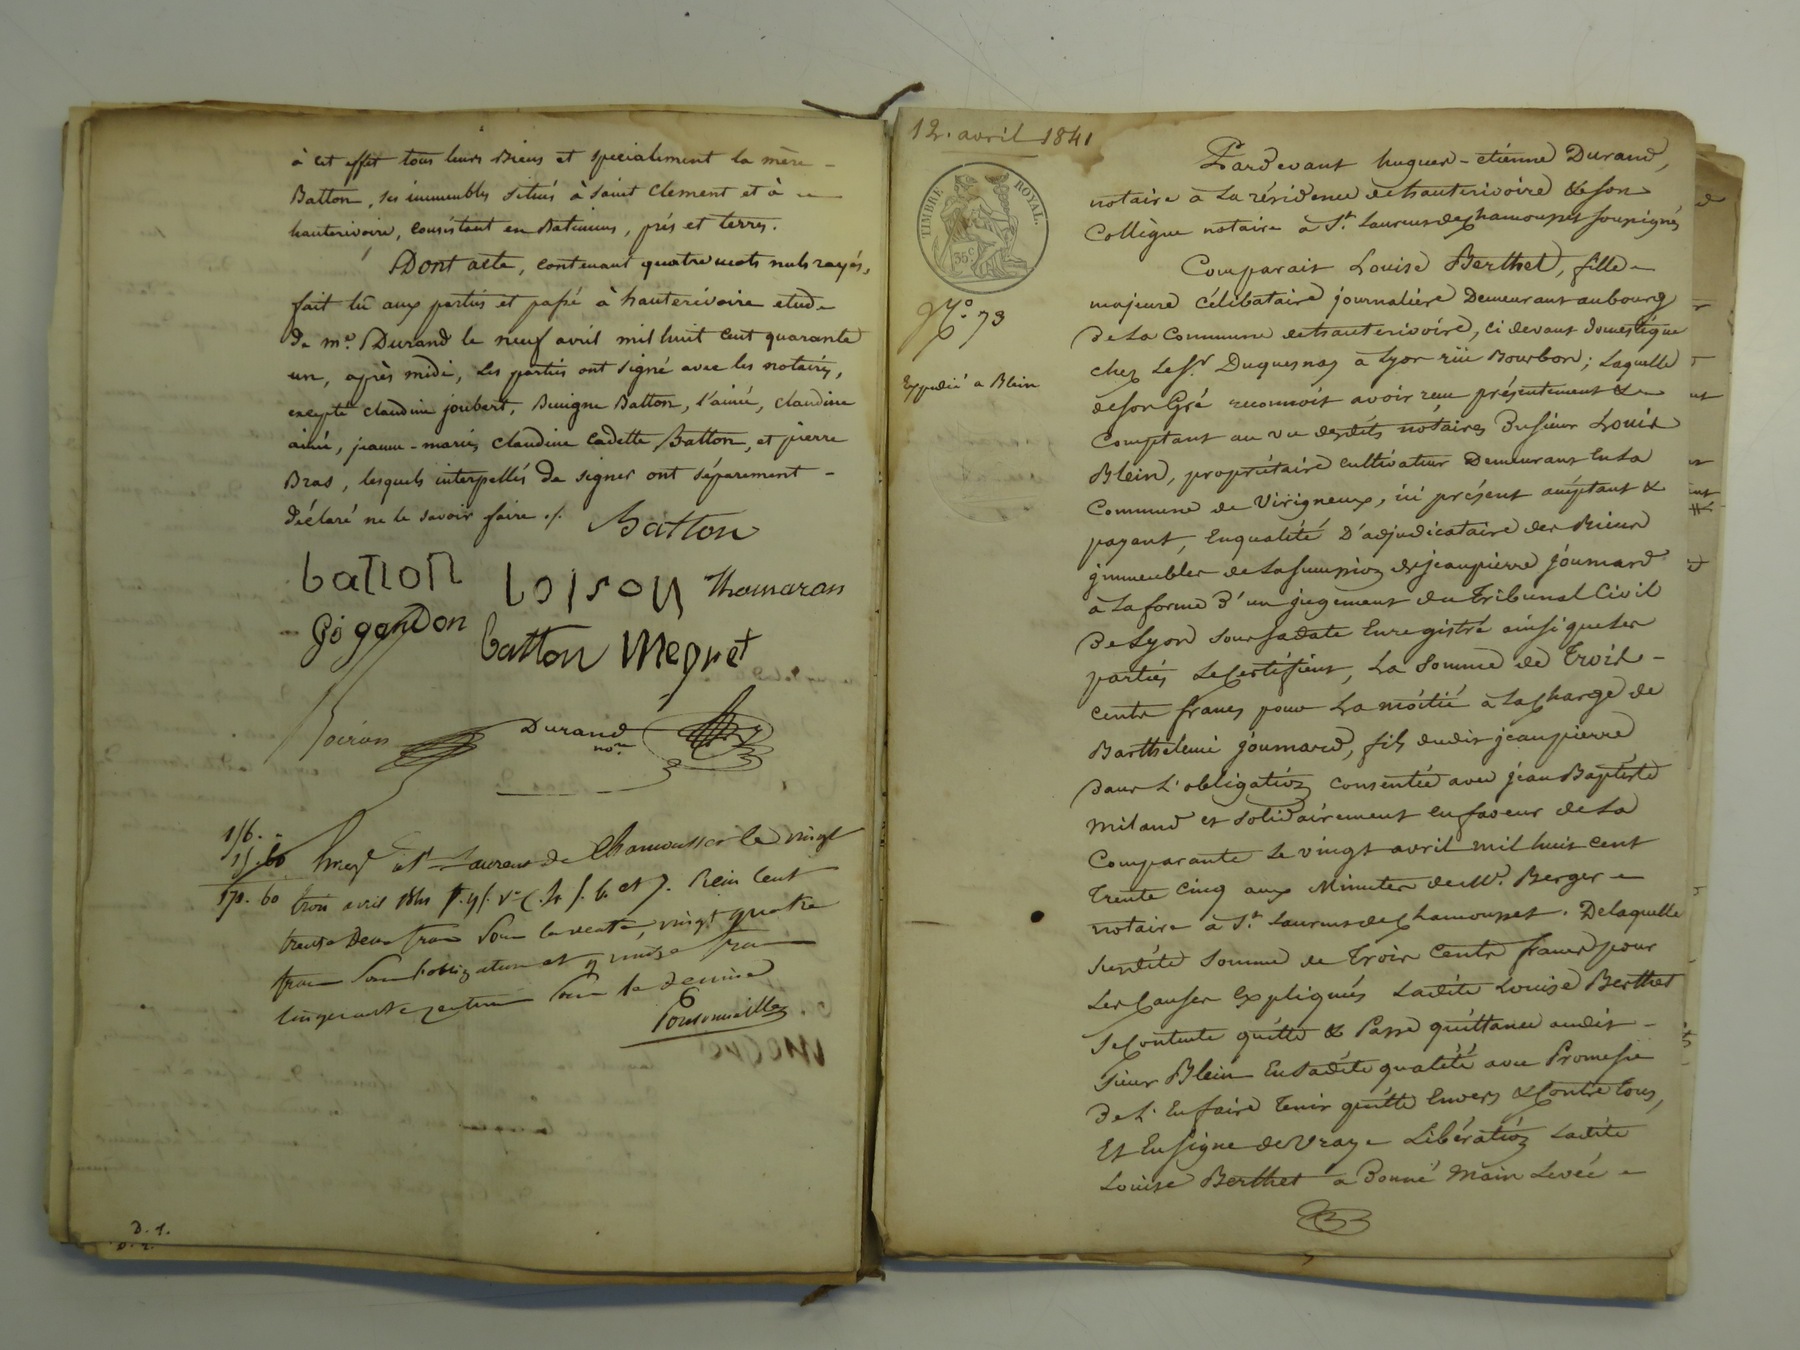 à cet effet tous leurs Biens et spécialement la mère -
Batton, ses immeubles situés à saint Clement et à
hauterivoire, consistant en Batimens, prés et terres.
Dont acte, contenant quatre mots nuls rayés,
fait lû aux parties et passé à hauterivoire etude
de me. Durand le neuf avril mil huit cent quarante
un, après midi, les parties ont signé avec les notaires,
excepté claudine joubert, Benigne Batton, l'ainée, claudine
ainée, jeanne-marie, claudine Cadette Batton, et pierre
Bras, lesquels interpellés de signer ont séparement -
déclaré ne le savoir faire ./.
Batton
batton loison Thomaran
Gogandon batton Megret
Durand
nore
156.
15.60
171.60
Enreg à St Laurent de Chamousset le vingt
trois avril 1841 Reçu Cent
trente Deux francs pour la vente, vingt quatre
francs pour l'obligation et quinze francs
cinquante centimes pour le dernier
D.1.
D.2.
12. avril 1841
TIMBRE ROYAL.
35c
No. 73
Expedié a Blein
Pardevant hugues-etienne Durand,
notaire à La résidence de hauterivoire & son
Collègue notaire à St. Laurent de Chamousset soussignés
Comparait Louise Berthet, fille -
majeure Célibataire journalière Demeurant au bourg
De La Commune de hauterivoire, ci devant domestique
chez Le Sr. Duquesnay à Lyon rüe Bourbon; Laquelle
de son Gré reconnoit avoir reçu présentement &
Comptant au vu desdits notaires Du sieur Louis
Blein, propriétaire cultivateur Demeurant En La
Commune de Virigneux, ici présent acceptant &
payant, En qualité D'adjudicataire des Biens
jmmeubles de La succession de jeanpierre joumard
à La forme D'un jugement du Tribunal Civil
De Lyon sous sa date Enregistré ainsi que Les
parties Le Certifient, La Somme de Trois -
cents francs pour La moitié à La Charge de
Barthélemi joumard, fils dudit jeanpierre
Dans L'obligation consentie avec jean Baptiste
Miland et solidairement en faveur de La
Comparante Le vingt avril mil huit cent
Trente Cinq aux Minutes de Me. Berger
notaire à St. Laurent de Chamousset. De laquelle
susdite Somme de Trois Cents francs pour
Les Causes Expliquées Ladite Louise Berthet
Se Contente quitte & Passe quittance audit -
sieur Blein En sadite qualité avec Promesse
De L'En faire Tenir quitte Envers & Contre tous,
Et En signe de Vraye Libération Ladite
Louise Berthet a Donné Main Levée -